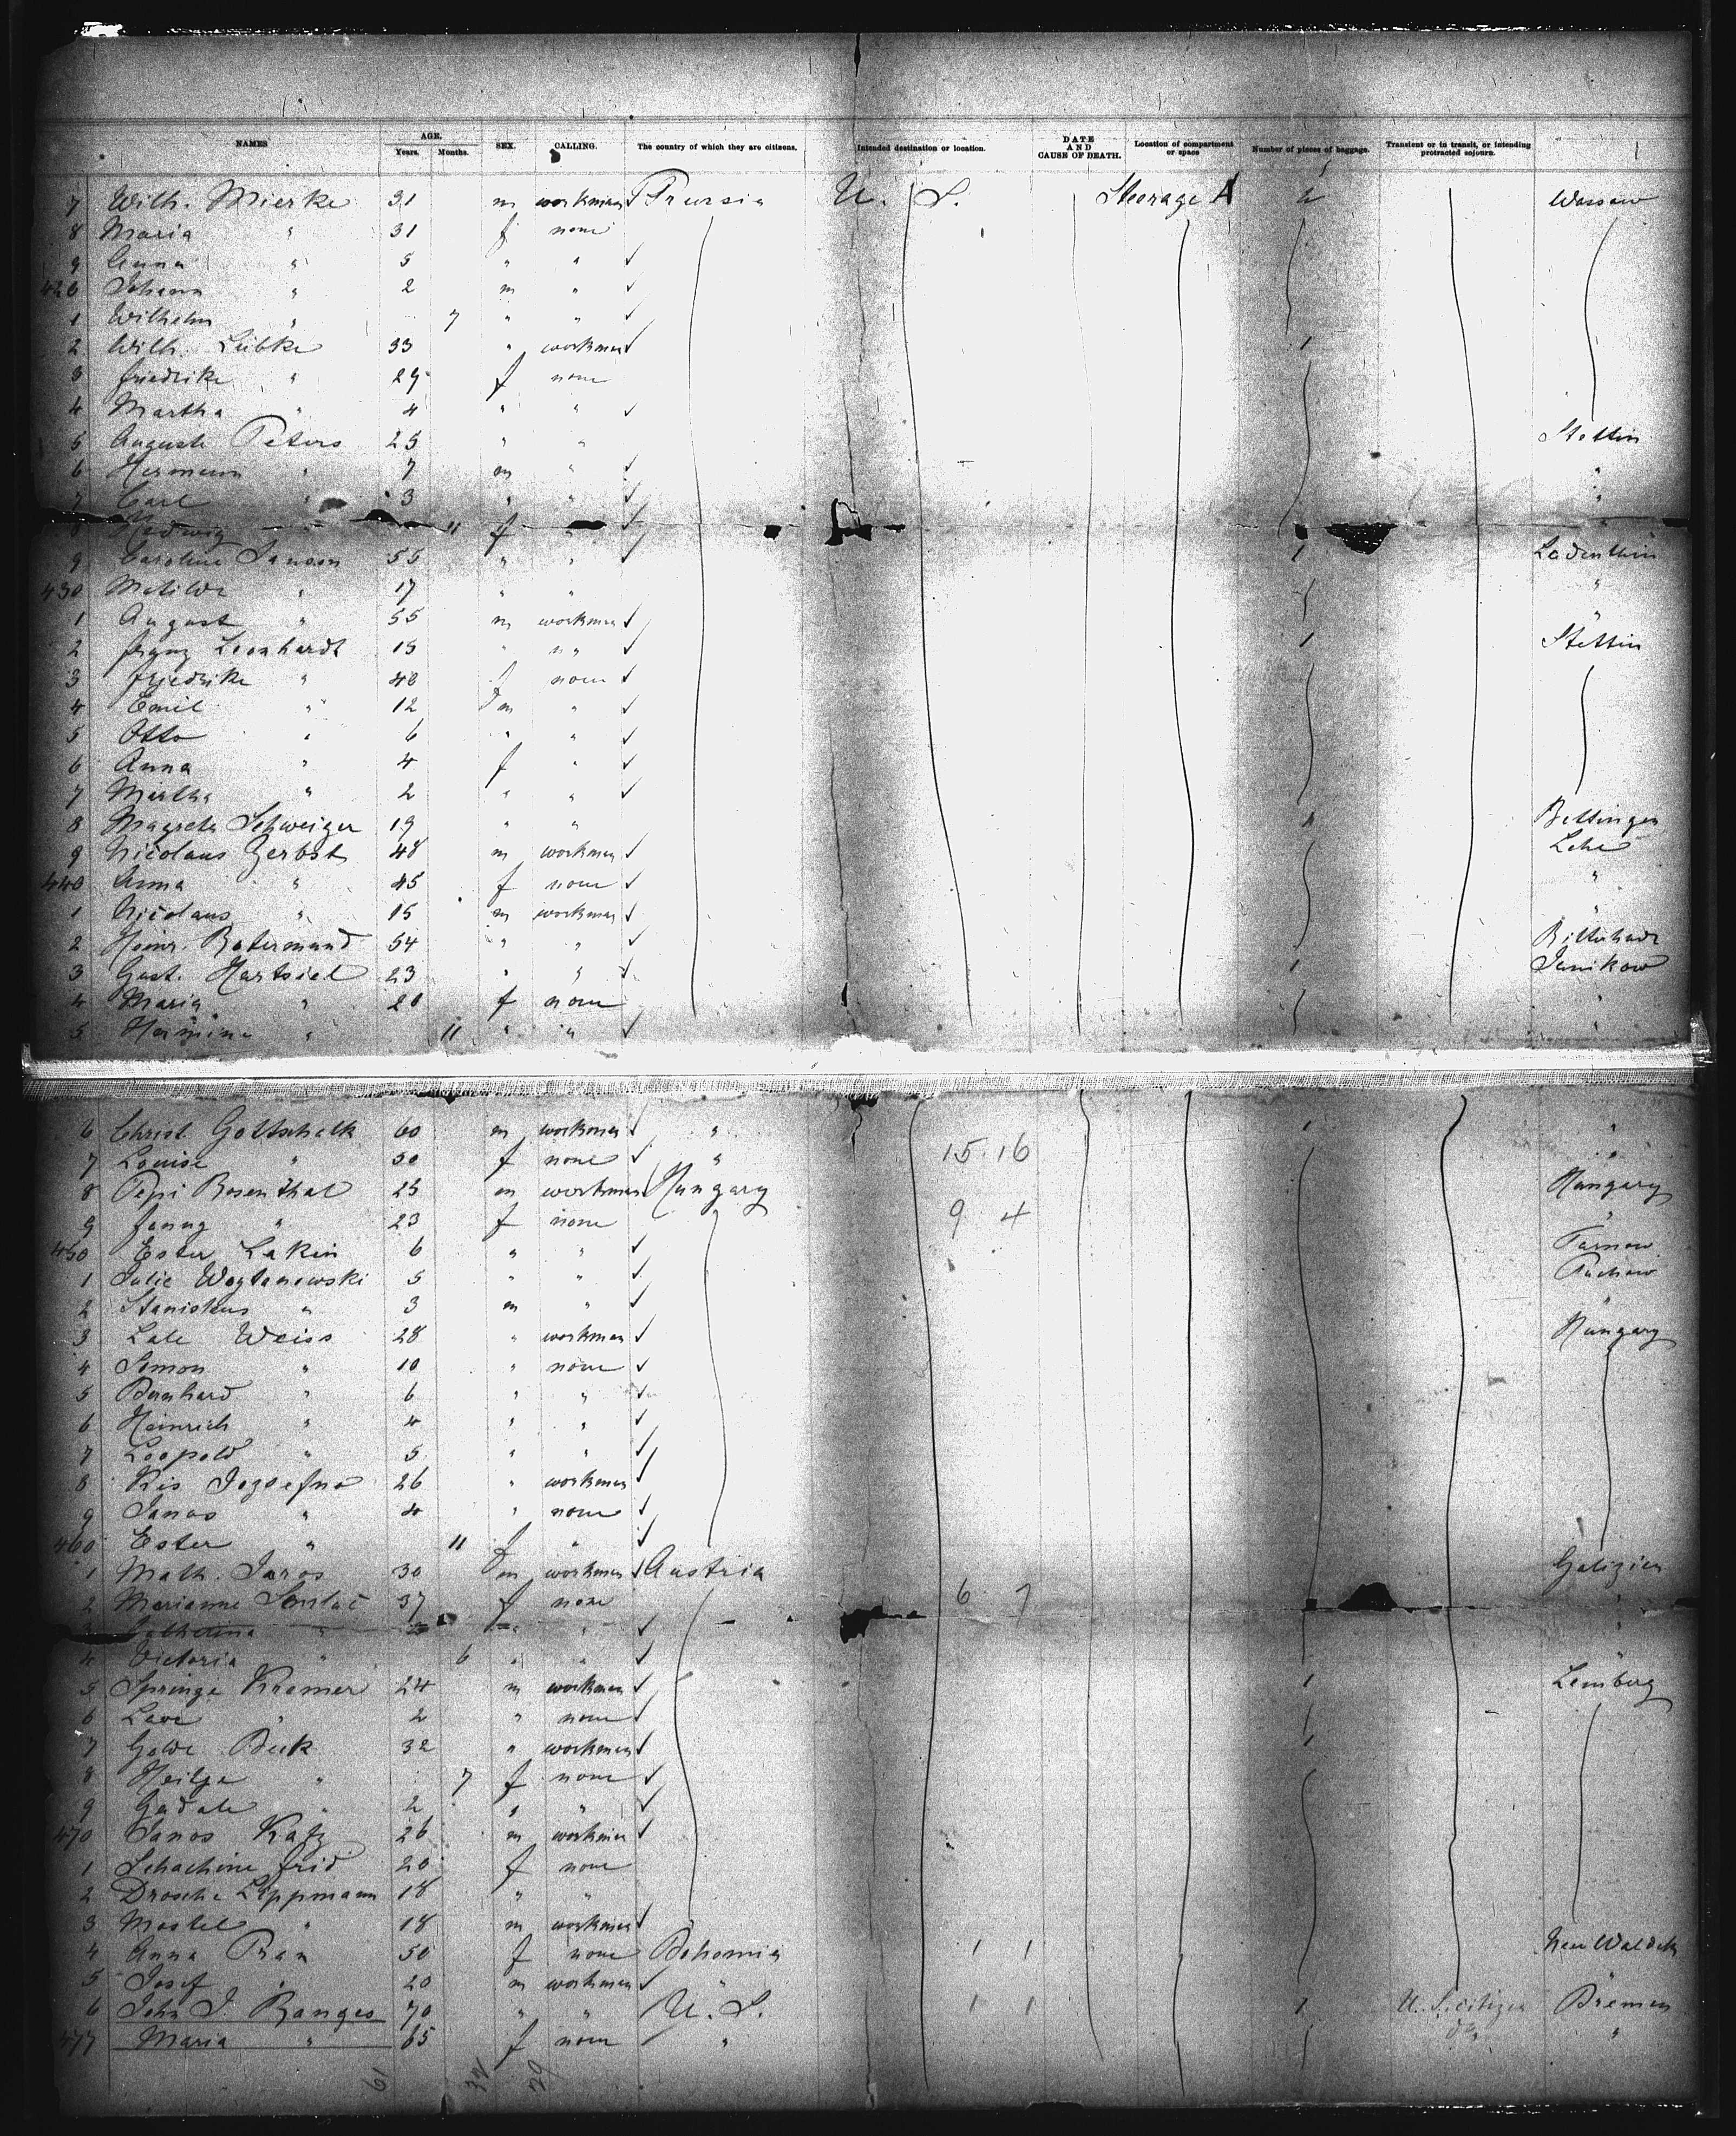 NAMES AGE. Years. Months. SEX. CALLING. The country of which they are citizens. Intended destination or location. DATE AND CAUSE OF DEATH. Location of compartment or space Number of pieces of baggage. Transient or in transit, or intending protracted sojourn.
7 Wilh. Mierke 31 m workman Prussia U. S. Steerage A 2 Wassow
8 Maria " 31 f none
9 Anna " 5 " "
420 Johann " 2 m "
1 Wilhelm " 7 " "
2 Wilh. Lübke 33 " workman 1
3 Friedrike " 29 f none
4 Martha " 4 " "
5 Auguste Peters 25 " " Stettin
6 Hermann " 7 m " "
7 Carl " 3 " " "
8 Hedwig " 11 f " "
9 Caroline Janson 55 " " 1 Ladenthin
430 Metilde " 17 " " "
1 August " 55 m workman "
2 Franz Leonhardt 15 " " 1 Stettin
3 Friedrike " 42 f none
4 Emil " 12 m "
5 Otto " 6 " "
6 Anna " 4 f "
7 Martha " 2 " "
8 Magreta Schweizer 19 " " Bettingen
9 Nicolaus Zerbst 48 m workman Lehe
440 Anna " 45 f none "
1 Nicolaus " 15 m workman "
2 Heinr. Batermund 54 " "
3 Gust. Hartsiel 23 " " 1 Janikow
4 Maria " 20 f none "
5 Hermine " 11 " " "
6 Christ. Gottschalk 60 m workman " 1 "
7 Louise " 50 f none " 15 16 "
8 Pepi Rosenthal 25 m workman Hungary Hungary
9 Fanny " 23 f none 9 4 "
450 Ester Lakin 6 " " Tarnow
1 Julie Wogtanowski 5 " " Tuchow
2 Stanislaus " 3 m " "
3 Lale Weiss 28 " workman Hungary
4 Simon " 10 " none
5 Bernhard " 6 " "
6 Heinrich " 4 " "
7 Leopold " 5 " "
8 Kis Jozsefne 26 " workman
9 Janos " 4 " none
460 Ester " 11 f "
1 Math. Jaros 30 m workman Austria Galizien
2 Marianne 37 f none 6 7 "
3 Catherina " 2 " "
4 Victoria " 6 " " "
5 Springe Kramer 24 m workman 1 Lemberg
6 Leve " 2 " none
7 Golde Beck 32 " workman 1
8 Heilge " 7 f none
9 Gadale " 2 " "
470 Janos Katz 26 m workman
1 Schachine Frid 20 f none
2 Drosche Lippmann 18 " "
3 Mostel " 18 m workman
4 Anna Pran 50 f none Bohemia 1 1 Neu Waldek
5 Josef " 20 m workman " "
6 John J. Ranges 70 " " U. S. 1 1 1 U. S. citizen Bremen
477 Maria " 65 f none " do "
61 32 29